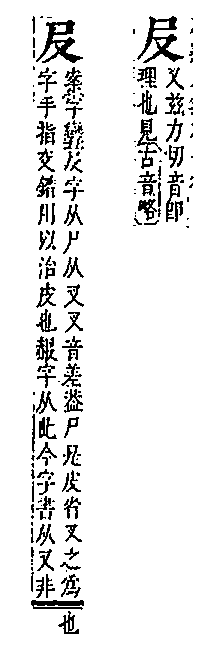 㞋
又兹力切音即
理也見古音略
㞋
案字彙㞋字从尸从叉叉音差蓋尸是皮省叉之為
字手指交錯用以治皮也赧字从此今字書从又非
也